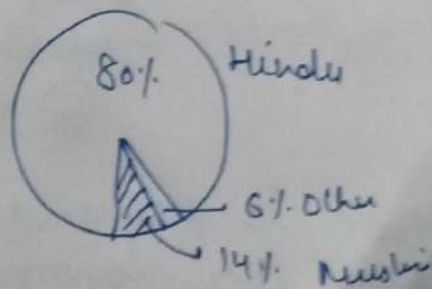 80% Hindu
6% Other
14% Muslim